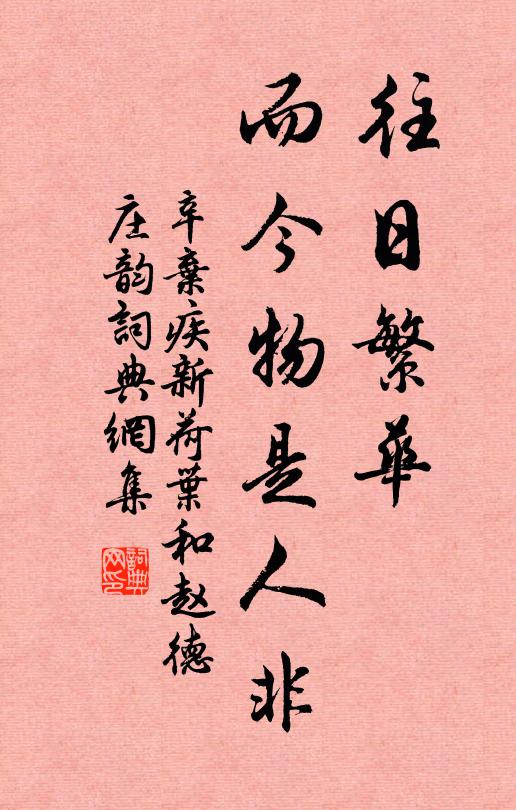 往日繁華
而今物是人非
辛棄疾新荷葉和赵德
庄韵詞典網集
詞典
网印